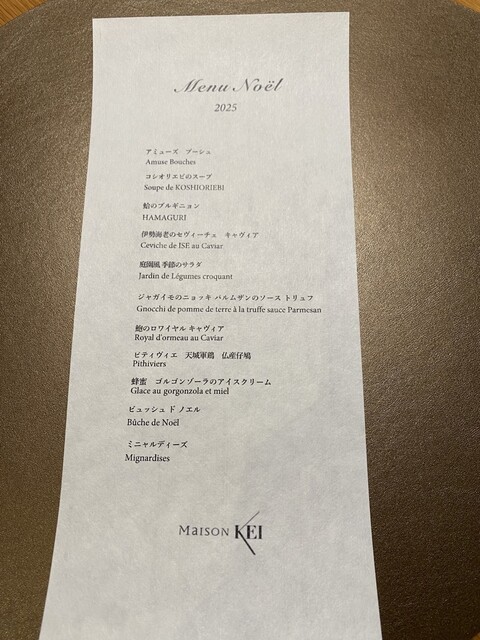 Menu Noël
2025
アミューズ ブーシュ
Amuse Bouches
コシオリエビのスープ
Soupe de KOSHIORIEBI
蛤のブルギニョン
HAMAGURI
伊勢海老のセヴィーチェ キャヴィア
Ceviche de ISE au Caviar
庭園風 季節のサラダ
Jardin de Légumes croquant
ジャガイモのニョッキ パルムザンのソース トリュフ
Gnocchi de pomme de terre à la truffe sauce Parmesan
鮑のロワイヤル キャヴィア
Royal d'ormeau au Caviar
ピティヴィエ 天城軍鶏 仏産仔鳩
Pithiviers
蜂蜜 ゴルゴンゾーラのアイスクリーム
Glace au gorgonzola et miel
ビュッシュ ド ノエル
Bûche de Noël
ミニャルディーズ
Mignardises
MAISON KEI